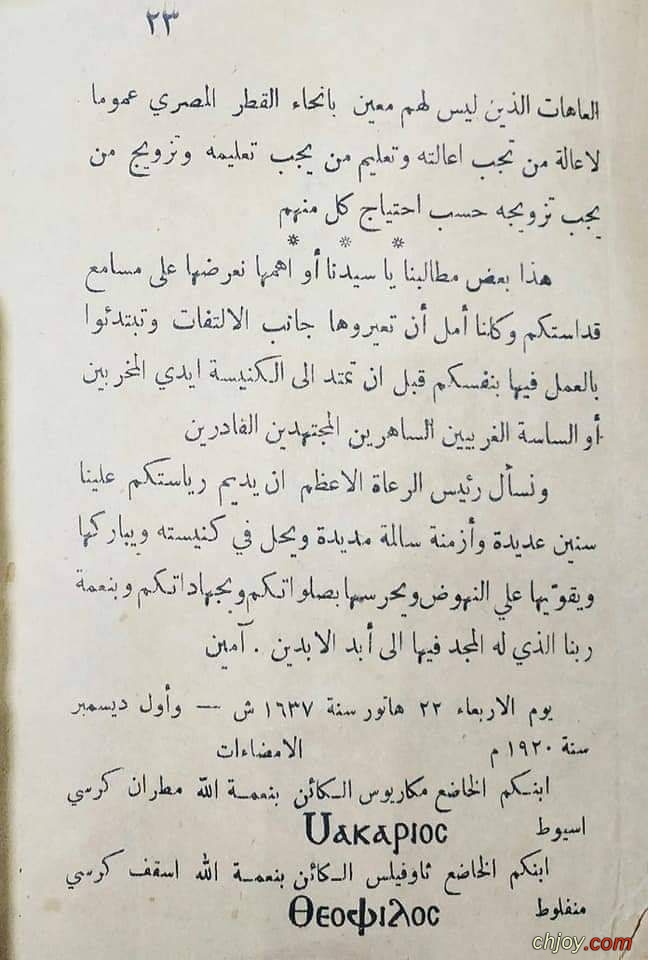 ٢٣
العاهات الذين ليس لهم معين بانحاء القطر المصري عموما
لاعالة من تجب اعالته وتعليم من يجب تعليمه وتزويج من
يجب تزويجه حسب احتياج كل منهم
* * *
هذا بعض مطالبنا يا سيدنا أو اهمها نعرضها على مسامع
قداستكم وكلنا أمل أن تعيروها جانب الالتفات وتبتدئوا
بالعمل فيها بنفسكم قبل ان تمتد الى الكنيسة ايدي المخربين
أو الساسة الغربيين الساهرين المجتهدين القادرين
ونسأل رئيس الرعاة الاعظم ان يديم رياستكم علينا
سنين عديدة وأزمنة سالمة مديدة ويحل في كنيسته ويباركها
ويقوّيها علي النهوض ويحرسها بصلواتكم وبجهاداتكم وبنعمة
ربنا الذي له المجد فيها الى أبد الابدين . آمين
يوم الاربعاء ٢٢ هاتور سنة ١٦٣٧ ش — وأول ديسمبر
سنة ١٩٢٠ م الامضاءات
ابنكم الخاضع مكاريوس الكائن بنعمة الله مطران كرسي
اسيوط Ⲙⲁⲕⲁⲣⲓⲟⲥ
ابنكم الخاضع ثاوفيلس الكائن بنعمة الله اسقف كرسي
منفلوط Ⲑⲉⲟⲫⲓⲗⲟⲥ
chjoy.com